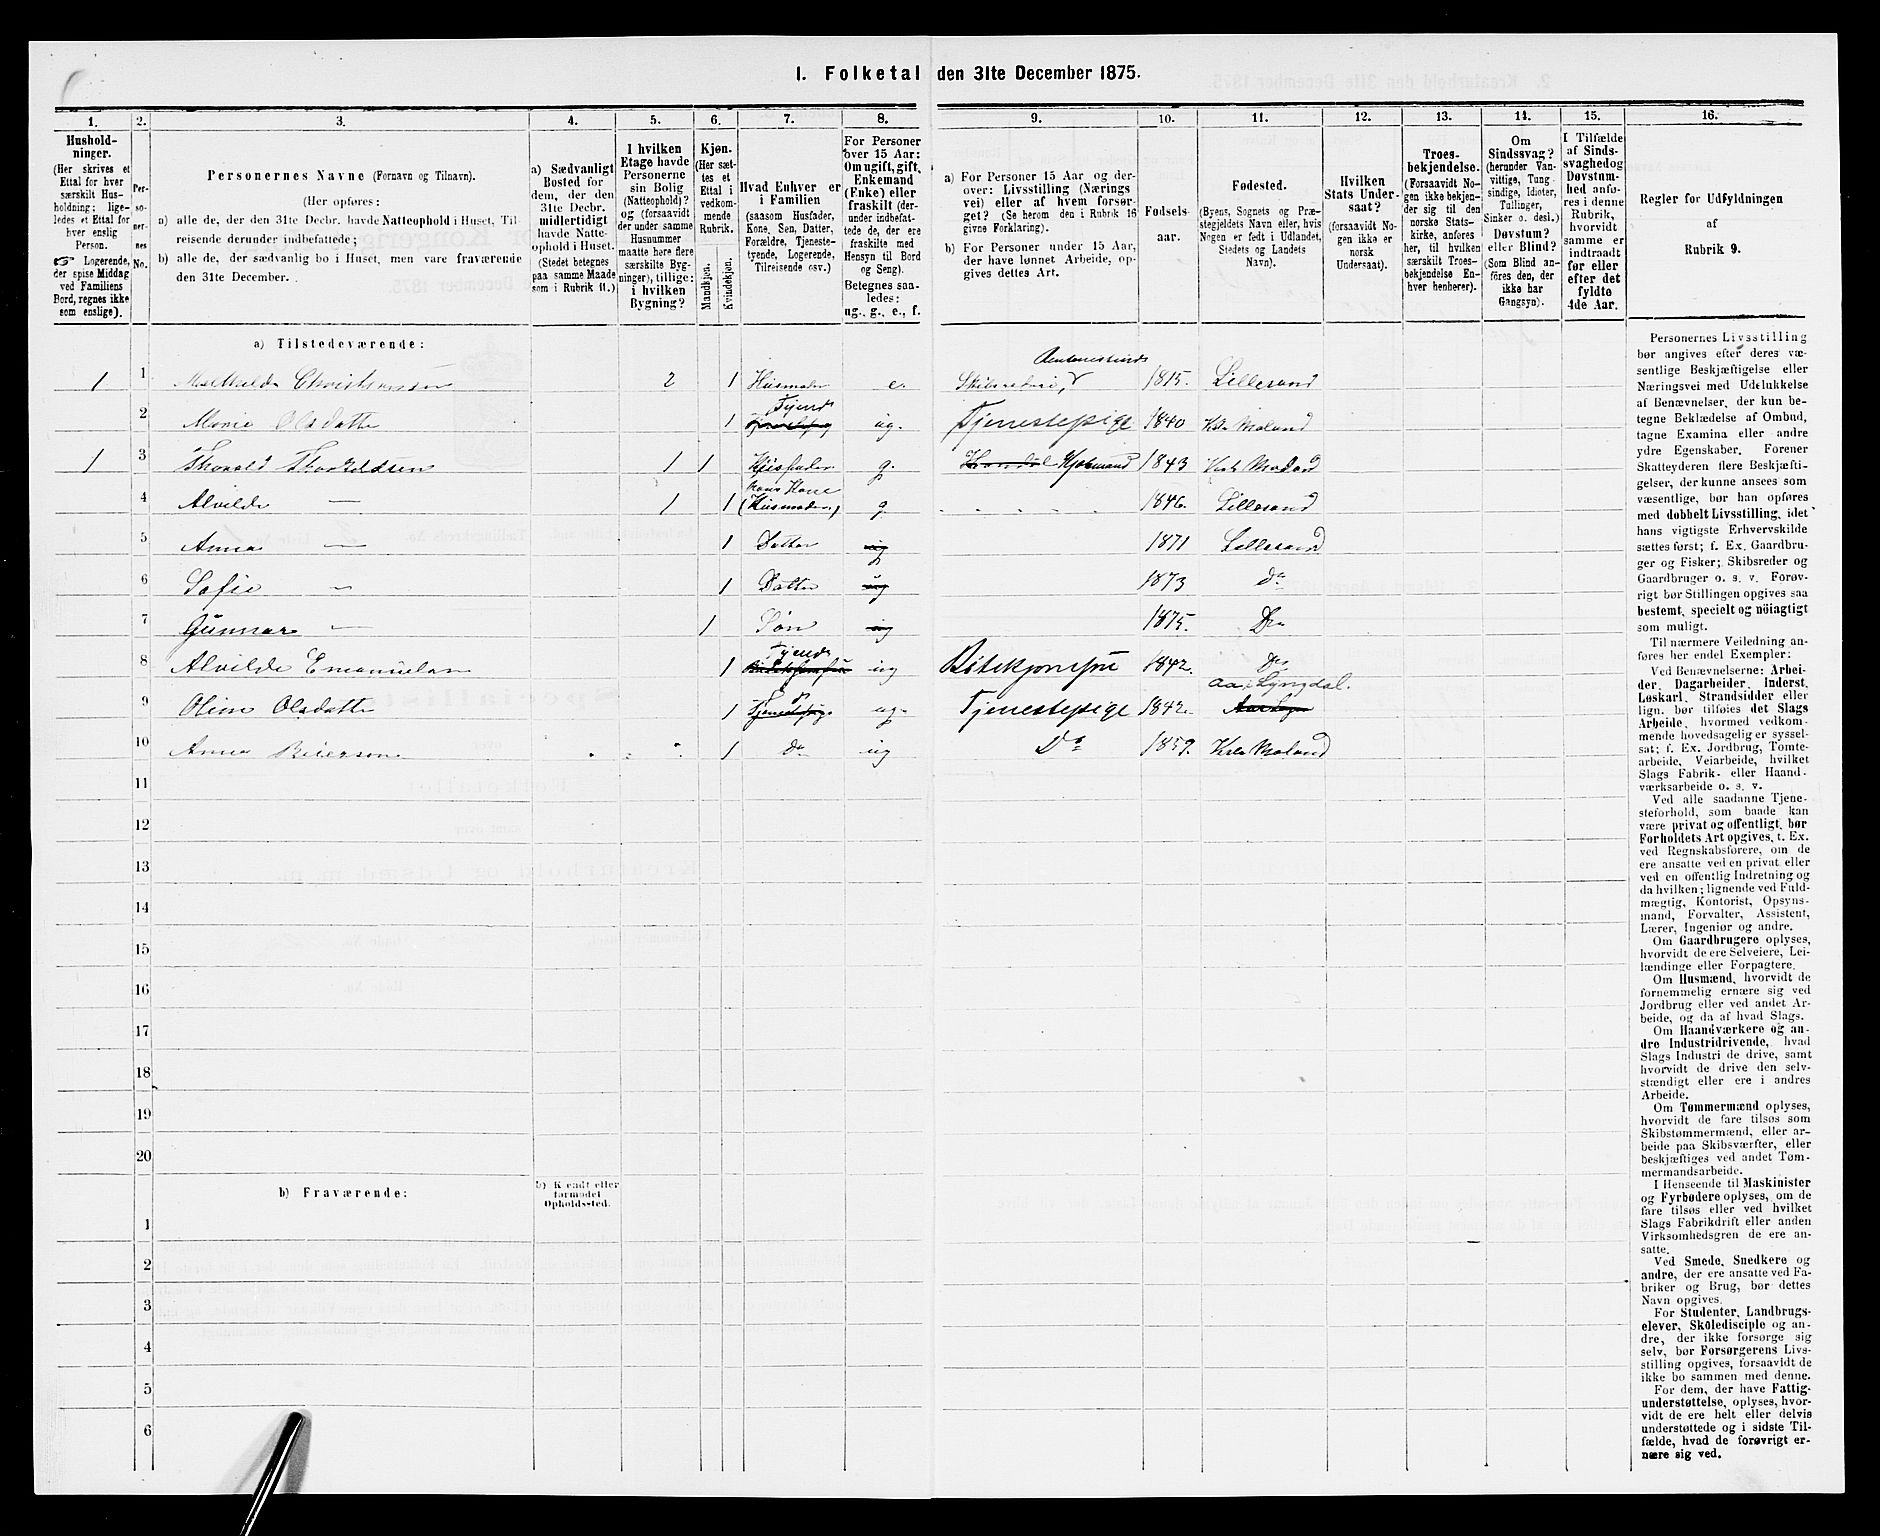 1. Folketal den 31te December 1875.
1.
Hushold-
ninger.
(Her skrives et
Ettal for hver
særskilt Hus-
holdning; lige-
ledes et Ettal for
hver enslig
Person.
☞ Logerende,
der spise Middag
ved Familiens
Bord, regnes ikke
som enslige).
2.
Per-
so-
ner-
nes
No.
3.
Personernes Navne (Fornavn og Tilnavn).
(Her opføres:
a) alle de, der den 31te Decbr. havde Natteophold i Huset, Til-
reisende derunder indbefattede;
b) alle de, der sædvanlig bo i Huset, men vare fraværende
den 31te December.
4.
a) Sædvanligt
Bosted for
dem, der den
31te Decbr.
midlertidigt
havde Natte-
ophold i Huset.
(Stedet betegnes
paa samme Maade
som i Rubrik 11.)
5.
I hvilken
Etage havde
Personerne
sin Bolig
(Natteophold)?
og (forsaavidt
der under samme
Husnummer
maatte høre flere
særskilte Byg-
ninger), tillige:
i hvilken
Bygning?
6.
Kjøn.
(Her sæt-
tes et
Ettal i
vedkom-
mende
Rubrik.
Mandkjøn.
Kvindekjøn.
7.
Hvad Enhver er
i Familien
(saasom Husfader,
Kone, Søn, Datter,
Forældre, Tjeneste-
tyende, Logerende,
Tilreisende osv.)
8.
For Personer
over 15 Aar:
Om ugift, gift,
Enkemand
(Enke) eller
fraskilt (der-
under indbefat-
tede de, der ere
fraskilte med
Hensyn til Bord
og Seng).
Betegnes saa-
ledes:
ug., g., e., f.
9.
a) For Personer 15 Aar og der-
over: Livsstilling (Nærings
vei) eller af hvem forsør-
get? (Se herom den i Rubrik 16
givne Forklaring).
b) For Personer under 15 Aar,
der have lønnet Arbeide, op-
gives dettes Art.
10.
Fødsels-
aar.
11.
Fødested.
(Byens, Sognets og Præ-
stegjeldets Navn eller, hvis
Nogen er født i Udlandet,
Stedets og Landets
Navn).
12.
Hvilken
Stats Under-
saat?
(forsaavidt No-
gen ikke er
norsk
Undersaat).
13.
Troes-
bekjendelse.
(Forsaavidt No-
gen ikke bekjen-
der sig til den
norske Stats-
kirke, anføres
her, til hvilken
særskilt Troes-
bekjendelse En-
hver henhører).
14.
Om
Sindssvag?
(herunder Van-
vittige, Tung-
sindige, Idioter,
Tullinger,
Sinker o. desl.)
Døvstum?
eller Blind?
(Som Blind an-
føres den, der
ikke har
Gangsyn).
15.
I Tilfælde
af Sinds-
svaghed og
Døvstum-
hed anfø-
res i denne
Rubrik,
hvorvidt
samme er
indtraadt
før eller
efter det
fyldte
4de Aar.
16.
Regler for Udfyldningen
af
Rubrik 9.
a) Tilstedeværende:
1 1 Christensen 2 1 Husmoder e. 1815. Lillesand
2 Marie Olsdatter 1 Tjenestepige ug. Tjenestepige 1840 Moland
1 3 Thorvald Thorkildsen 1 1 Husfader g. Handel Kjøbmand 1843 Moland
4 Alvilde — 1 1 hans Kone (Husmoder) g. 1846. Lillesand
5 Anna — 1 Datter ug 1871 Lillesand
6 Sofie — 1 Datter ug 1873 do
7 Gunnar — 1 Søn ug 1875. Do
8 Alvilde 1 Tjende ug 1842. Do
9 Oline Olsdatter 1 Tjenestepige ug. Tjenestepige 1842. Lyngdal.
10 Anna 1 do ug Do 1859. Moland
11
12
13
14
15
16
17
18
19
20
b) Fraværende:
b) Kjendt eller
formodet
Opholdssted.
1
2
3
4
5
6
Personernes Livsstilling
bør angives efter deres væ-
sentlige Beskjæftigelse eller
Næringsvei med Udelukkelse
af Benævnelser, der kun be-
tegne Beklædelse af Ombud,
tagne Examina eller andre
ydre Egenskaber. Forener
Skatteyderen flere Beskjæfti-
gelser, der kunne ansees som
væsentlige, bør han opføres
med dobbelt Livsstilling, idet
hans vigtigste Erhvervskilde
sættes først; f. Ex. Gaardbru-
ger og Fisker; Skibsreder og
Gaardbruger o. s. v. Forøv-
rigt bør Stillingen opgives saa
bestemt, specielt og nöiagtigt
som muligt.
Til nærmere Veiledning an-
føres her endel Exempler:
Ved Benævnelserne: Arbei-
der, Dagarbeider, Inderst,
Løskarl, Strandsidder eller
lign. bør tilføies det Slags
Arbeide, hvormed vedkom-
mende hovedsagelig er syssel-
sat; f. Ex. Jordbrug, Tomte-
arbeide, Veiarbeide, hvilket
Slags Fabrik- eller Haand-
værksarbeide o. s. v.
Ved alle saadanne Tjene-
steforhold, som baade kan
være privat og offentligt, bør
Forholdets Art opgives, t. Ex.
ved Regnskabsførere, om de
ere ansatte ved en privat eller
ved en offentlig Indretning og
da hvilken; lignende ved Fuld-
mægtig, Kontorist, Opsyns-
mand, Forvalter, Assistent,
Lærer, Ingeniør og andre.
Om Gaardbrugere oplyses,
hvorvidt de ere Selveiere, Lei-
lændinge eller Forpagtere.
Om Husmænd, hvorvidt de
fornemmelig ernære sig ved
Jordbrug eller ved andet Ar-
beide, og da af hvad Slags.
Om Haandværkere og an-
dre Industridrivende, hvad
Slags Industri de drive, samt
hvorvidt de drive den selv-
stændigt eller ere i andres
Arbeide.
Om Tømmermænd oplyses,
hvorvidt de fare tilsøs som
Skibstømmermænd, eller ar-
beide paa Skibsværfter, eller
beskjæftiges ved andet Tøm-
mermandsarbeide.
I Henseende til Maskinister
og Fyrbødere oplyses, om de
fare tilsøs eller ved hvilket
Slags Fabrikdrift eller anden
Virksomhedsgren de ere an-
satte.
Ved Smede, Snedkere og
andre, der ere ansatte ved Fa-
briker og Brug, bør dettes
Navn opgives.
For Studenter, Landbrugs-
elever, Skoledisciple og an-
dre, der ikke forsørge sig
selv, bør Forsørgerens Livs-
stilling opgives, forsaavidt de
ikke bo sammen med denne.
For dem, der have Fattig-
understøttelse, oplyses, hvor-
vidt de ere helt eller delvis
understøttede og i sidste Til-
fælde, hvad de forøvrigt er-
nære sig ved.